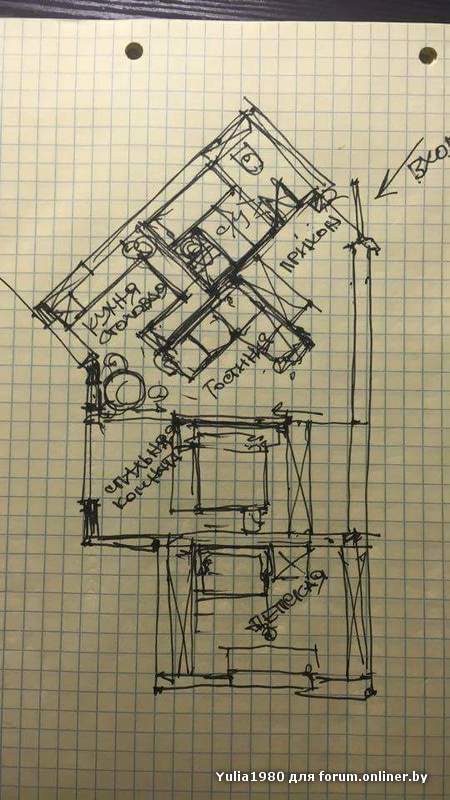 ВХОД
С/У
ПРИХОЖ
КУХНЯ
СТОЛОВАЯ
ГОСТИНАЯ
СПАЛЬНАЯ
КОМНАТА
ДЕТСКАЯ
Yulia1980 для forum.onliner.by